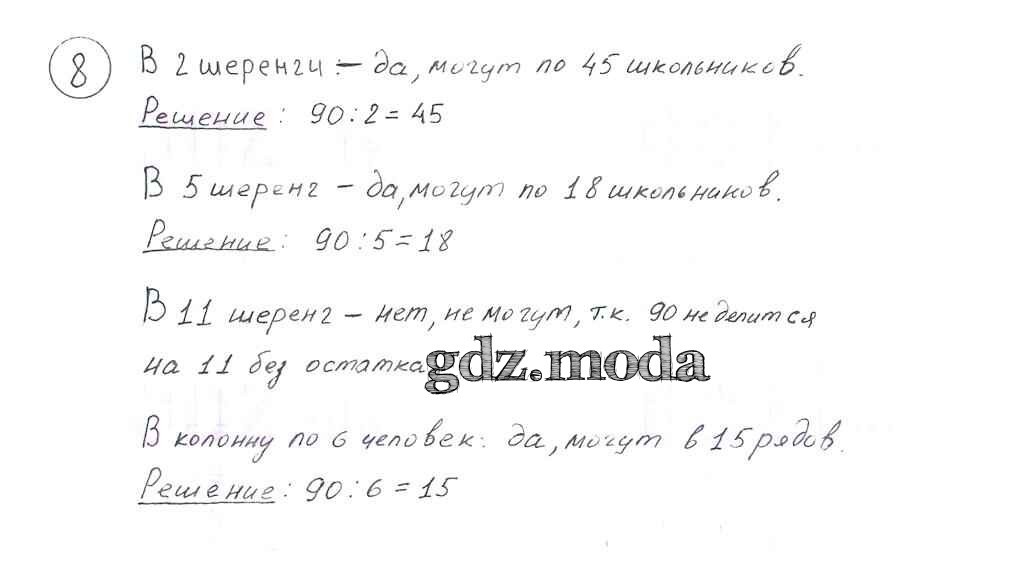 8 В 2 шеренги :– да, могут по 45 школьников.
Решение : 90:2 = 45
В 5 шеренг – да, могут по 18 школьников.
Решение : 90:5=18
В 11 шеренг – нет, не могут, т.к. 90 не делится
на 11 без остатка gdz.moda
В колонну по 6 человек: да, могут в 15 рядов.
Решение : 90:6 = 15